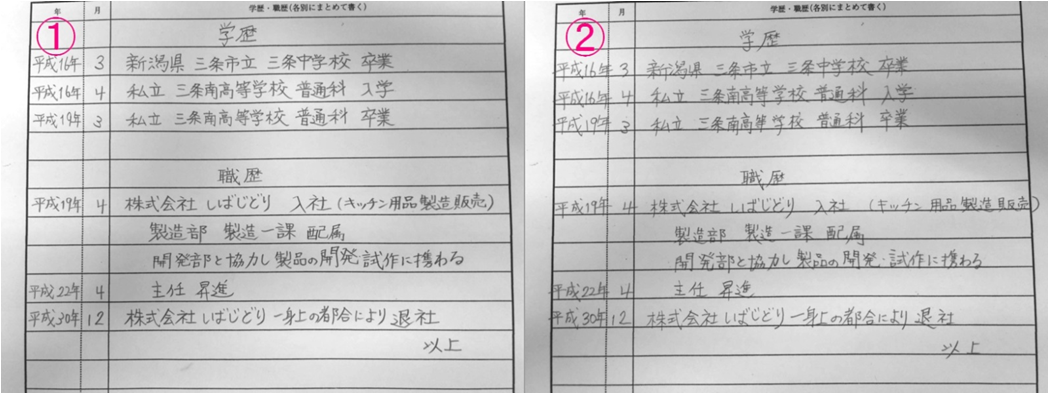 ①
年 月 学歴・職歴(各別にまとめて書く)
学歴
平成16年 3 新潟県 三条市立 三条中学校 卒業
平成16年 4 私立 三条南高等学校 普通科 入学
平成19年 3 私立 三条南高等学校 普通科 卒業
職歴
平成19年 4 株式会社 しばじどり 入社(キッチン用品製造販売)
製造部 製造一課 配属
開発部と協力し製品の開発・試作に携わる
平成22年 4 主任 昇進
平成30年 12 株式会社しばじどり 一身上の都合により 退社
以上
②
年 月 学歴・職歴(各別にまとめて書く)
学歴
平成16年 3 新潟県 三条市立 三条中学校 卒業
平成16年 4 私立 三条南高等学校 普通科 入学
平成19年 3 私立 三条南高等学校 普通科 卒業
職歴
平成19年 4 株式会社 しばじどり 入社 (キッチン用品製造販売)
製造部 製造一課 配属
開発部と協力し製品の開発・試作に携わる
平成22年 4 主任 昇進
平成30年 12 株式会社しばじどり 一身上の都合により 退社
以上